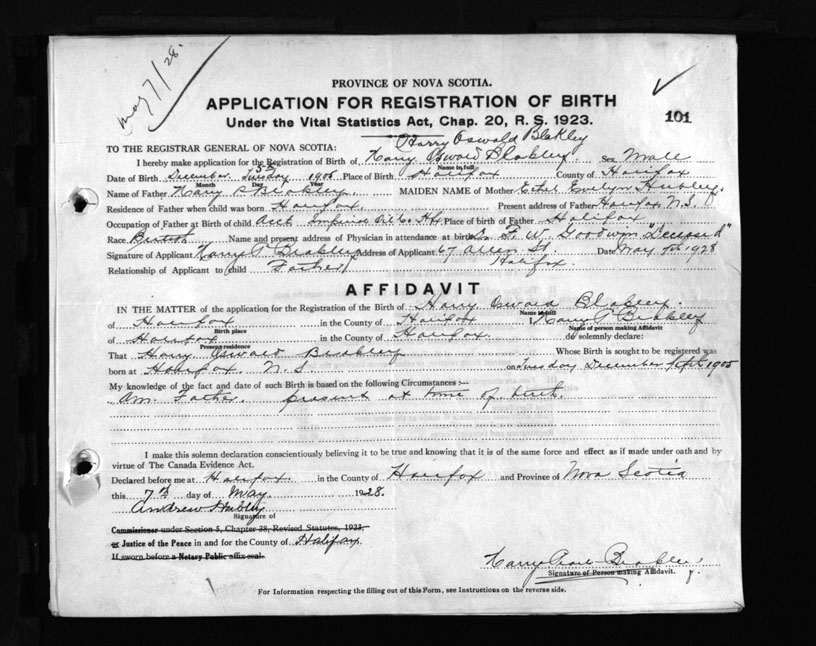 May 7/28.
PROVINCE OF NOVA SCOTIA.
APPLICATION FOR REGISTRATION OF BIRTH
Under the Vital Statistics Act, Chap. 20, R. S. 1923.
101
Harry Oswald Blakley
TO THE REGISTRAR GENERAL OF NOVA SCOTIA:
I hereby make application for the Registration of Birth of Harry Oswald Blakley. Sex Male
Name in full
Date of Birth December Tuesday 5th 1905 Place of Birth Halifax County of Halifax
Month Day Year
Name of Father Harry P Blakley MAIDEN NAME of Mother Ethel Evelyn Hubley.
Residence of Father when child was born Halifax Present address of Father Halifax N.S.
Occupation of Father at Birth of child Acct Imperial Oil Co. Hfx Place of birth of Father Halifax
Race British Name and present address of Physician in attendance at birth Dr F. W. Goodwin "Deceased"
Signature of Applicant Harry P. Blakley Address of Applicant 67 Allen St. Date May 7th 1928
Halifax.
Relationship of Applicant to child Father
AFFIDAVIT
IN THE MATTER of the application for the Registration of the Birth of Harry Oswald Blakley.
Name in full
of Halifax in the County of Halifax I, Harry P. Blakley
Birth place Name of person making Affidavit
of Halifax in the County of Halifax. do solemnly declare:
Present residence
That Harry Oswald Blakley Whose Birth is sought to be registered was
born at Halifax N.S on Tuesday December 5th 1905
My knowledge of the fact and date of such Birth is based on the following Circumstances:—
Am Father. present at time of birth.
I make this solemn declaration conscientiously believing it to be true and knowing that it is of the same force and effect as if made under oath and by
virtue of The Canada Evidence Act.
Declared before me at Halifax. in the County of Halifax and Province of Nova Scotia
this 7th day of May 1928.
Andrew Hubley
Signature of
Commissioner under Section 5, Chapter 38, Revised Statutes, 1923,
or Justice of the Peace in and for the County of Halifax.
If sworn before a Notary Public affix seal.
Harry Blakley
Signature of Person making Affidavit.
For Information respecting the filling out of this Form, see Instructions on the reverse side.